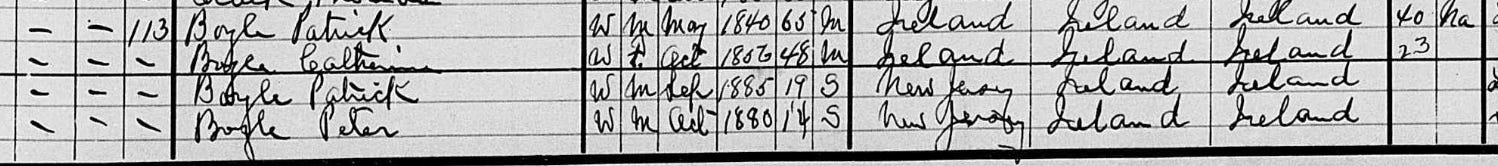 — — 113 Boyle Patrick W M May 1840 65 M Ireland Ireland Ireland 40 Na
— — — Boyle Catherine W F Oct 1856 48 M Ireland Ireland Ireland 23
— — — Boyle Patrick W M Sep 1885 19 S New Jersey Ireland Ireland
— — — Boyle Peter W M Oct 1880 14 S New Jersey Ireland Ireland